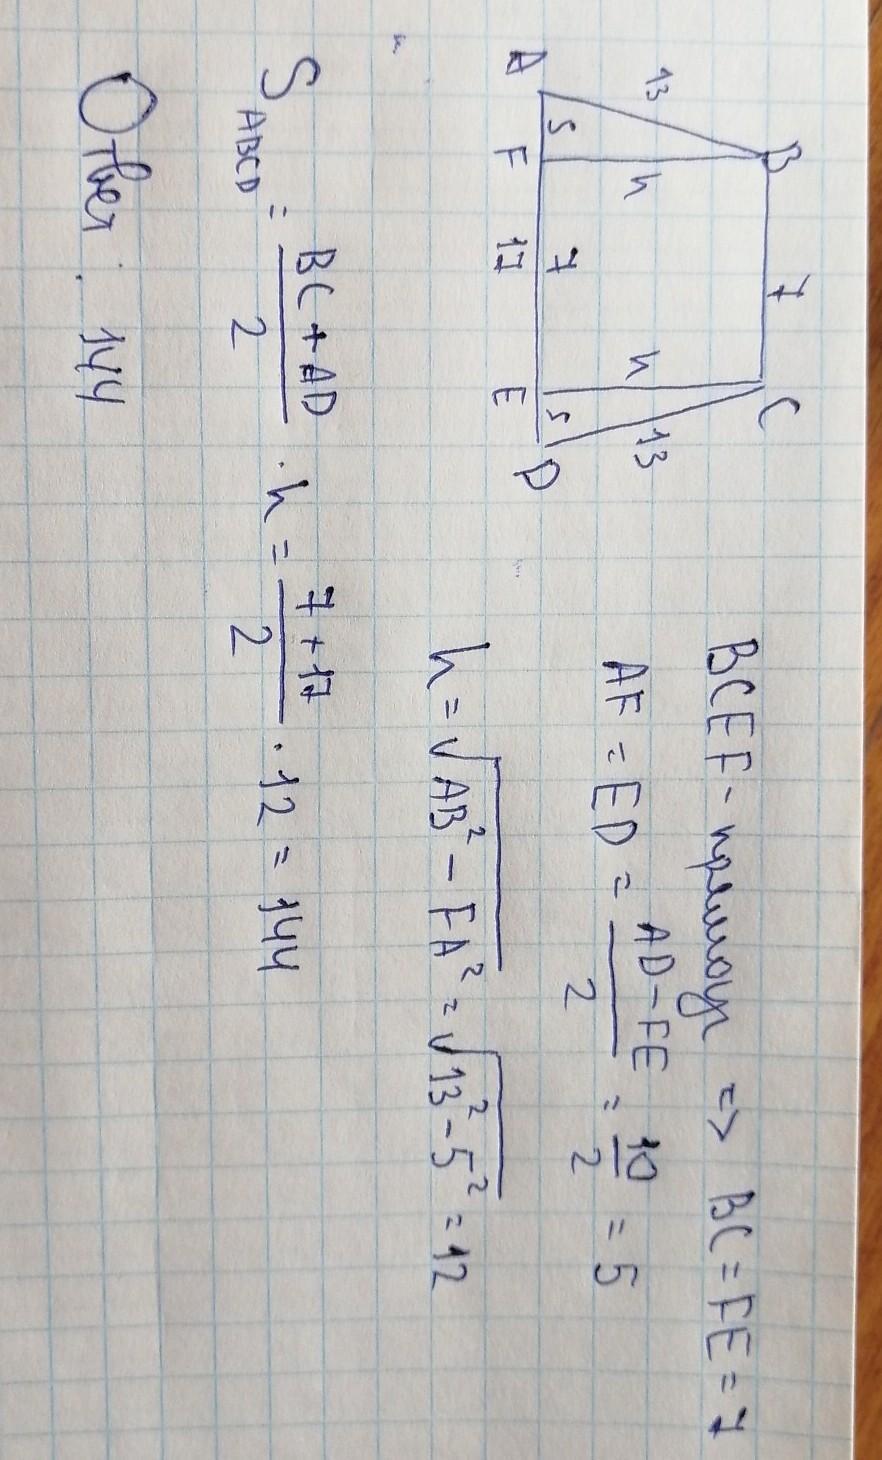 B 7 C
13 h h 13
5 7 5
A F 17 E D
BCEF - прямоуг => BC = FE = 7
AF = ED = AD - FE / 2 = 10 / 2 = 5
h = √AB² - FA² = √13² - 5² = 12
S ABCD = BC + AD / 2 · h = 7 + 17 / 2 · 12 = 144
Ответ: 144